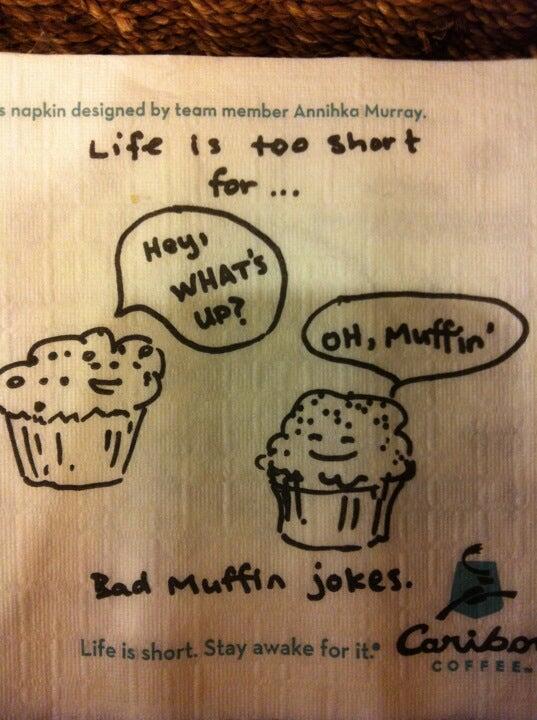 s napkin designed by team member Annihka Murray.
Life is too short
for...
Hey,
WHAT'S
UP?
OH, Muffin'
Bad Muffin jokes.
Life is short. Stay awake for it.®
Caribo
COFFEE™